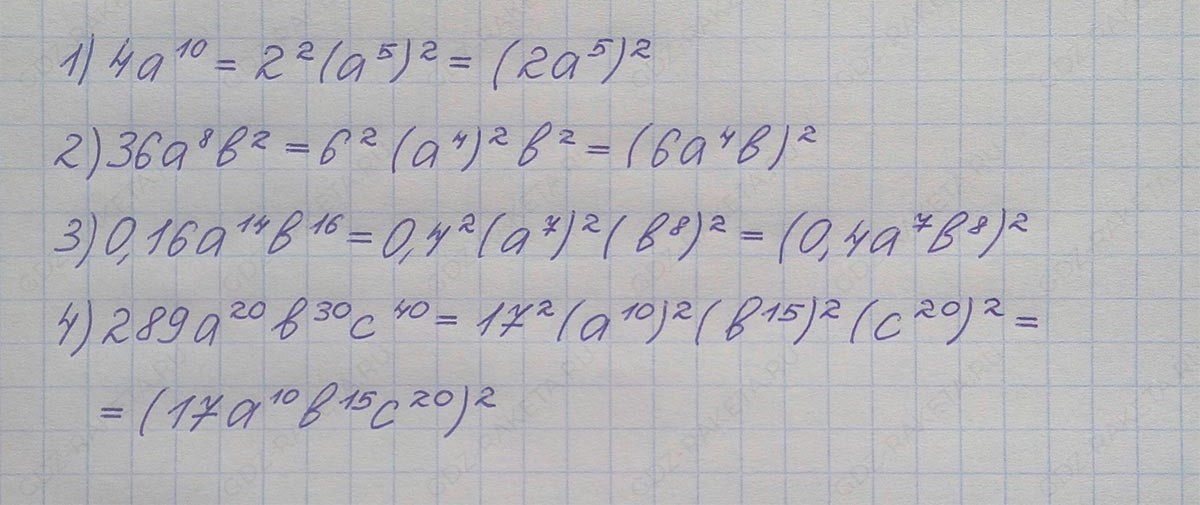 1) 4a¹⁰ = 2²(a⁵)² = (2a⁵)²
2) 36a⁸b² = 6²(a⁴)²b² = (6a⁴b)²
3) 0,16a¹⁴b¹⁶ = 0,4²(a⁷)²(b⁸)² = (0,4a⁷b⁸)²
4) 289a²⁰b³⁰c⁴⁰ = 17²(a¹⁰)²(b¹⁵)²(c²⁰)² =
= (17a¹⁰b¹⁵c²⁰)²